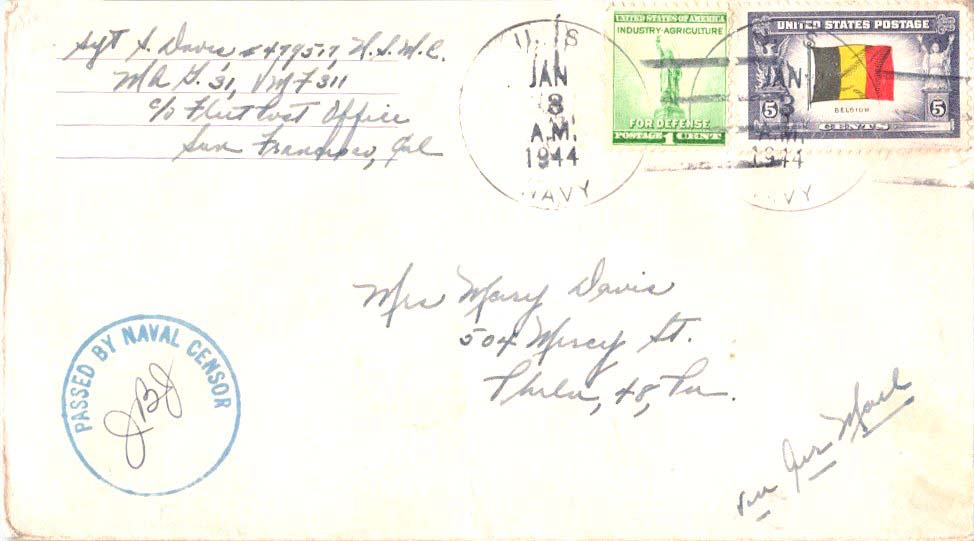 Sgt S. Davis #479577 U.S.M.C.
MA G. 31, VMF 311
c/o Fleet Post Office
San Francisco, Cal
U.S.
JAN
3
A.M.
1944
NAVY
UNITED STATES OF AMERICA
INDUSTRY·AGRICULTURE
FOR DEFENSE
POSTAGE 1 CENT
UNITED STATES POSTAGE
BELGIUM
5 5
CENTS
S
JAN
3
A.M.
1944
VY
Mrs Mary Davis
504 Mercy St.
Phila, 48, Pa.
PASSED BY NAVAL CENSOR
JBJ
via Air Mail